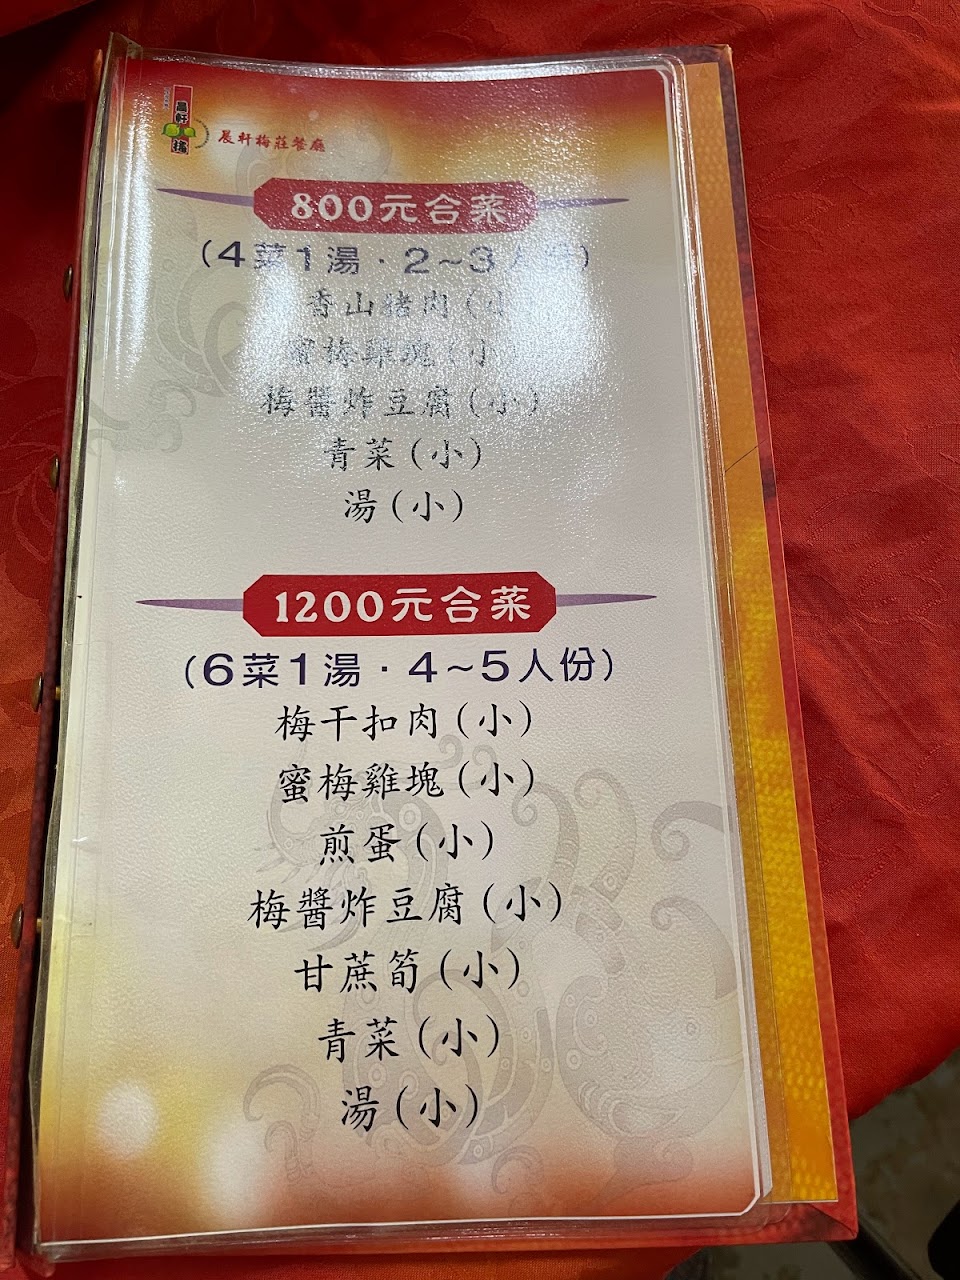 晨軒梅莊餐廳
800元合菜
(4菜1湯·2~3人份)
香山豬肉(小
蜜梅雞塊(小)
梅醬炸豆腐(小)
青菜(小)
湯(小)
1200元合菜
(6菜1湯·4~5人份)
梅干扣肉(小)
蜜梅雞塊(小)
煎蛋(小)
梅醬炸豆腐(小)
甘蔗筍(小)
青菜(小)
湯(小)